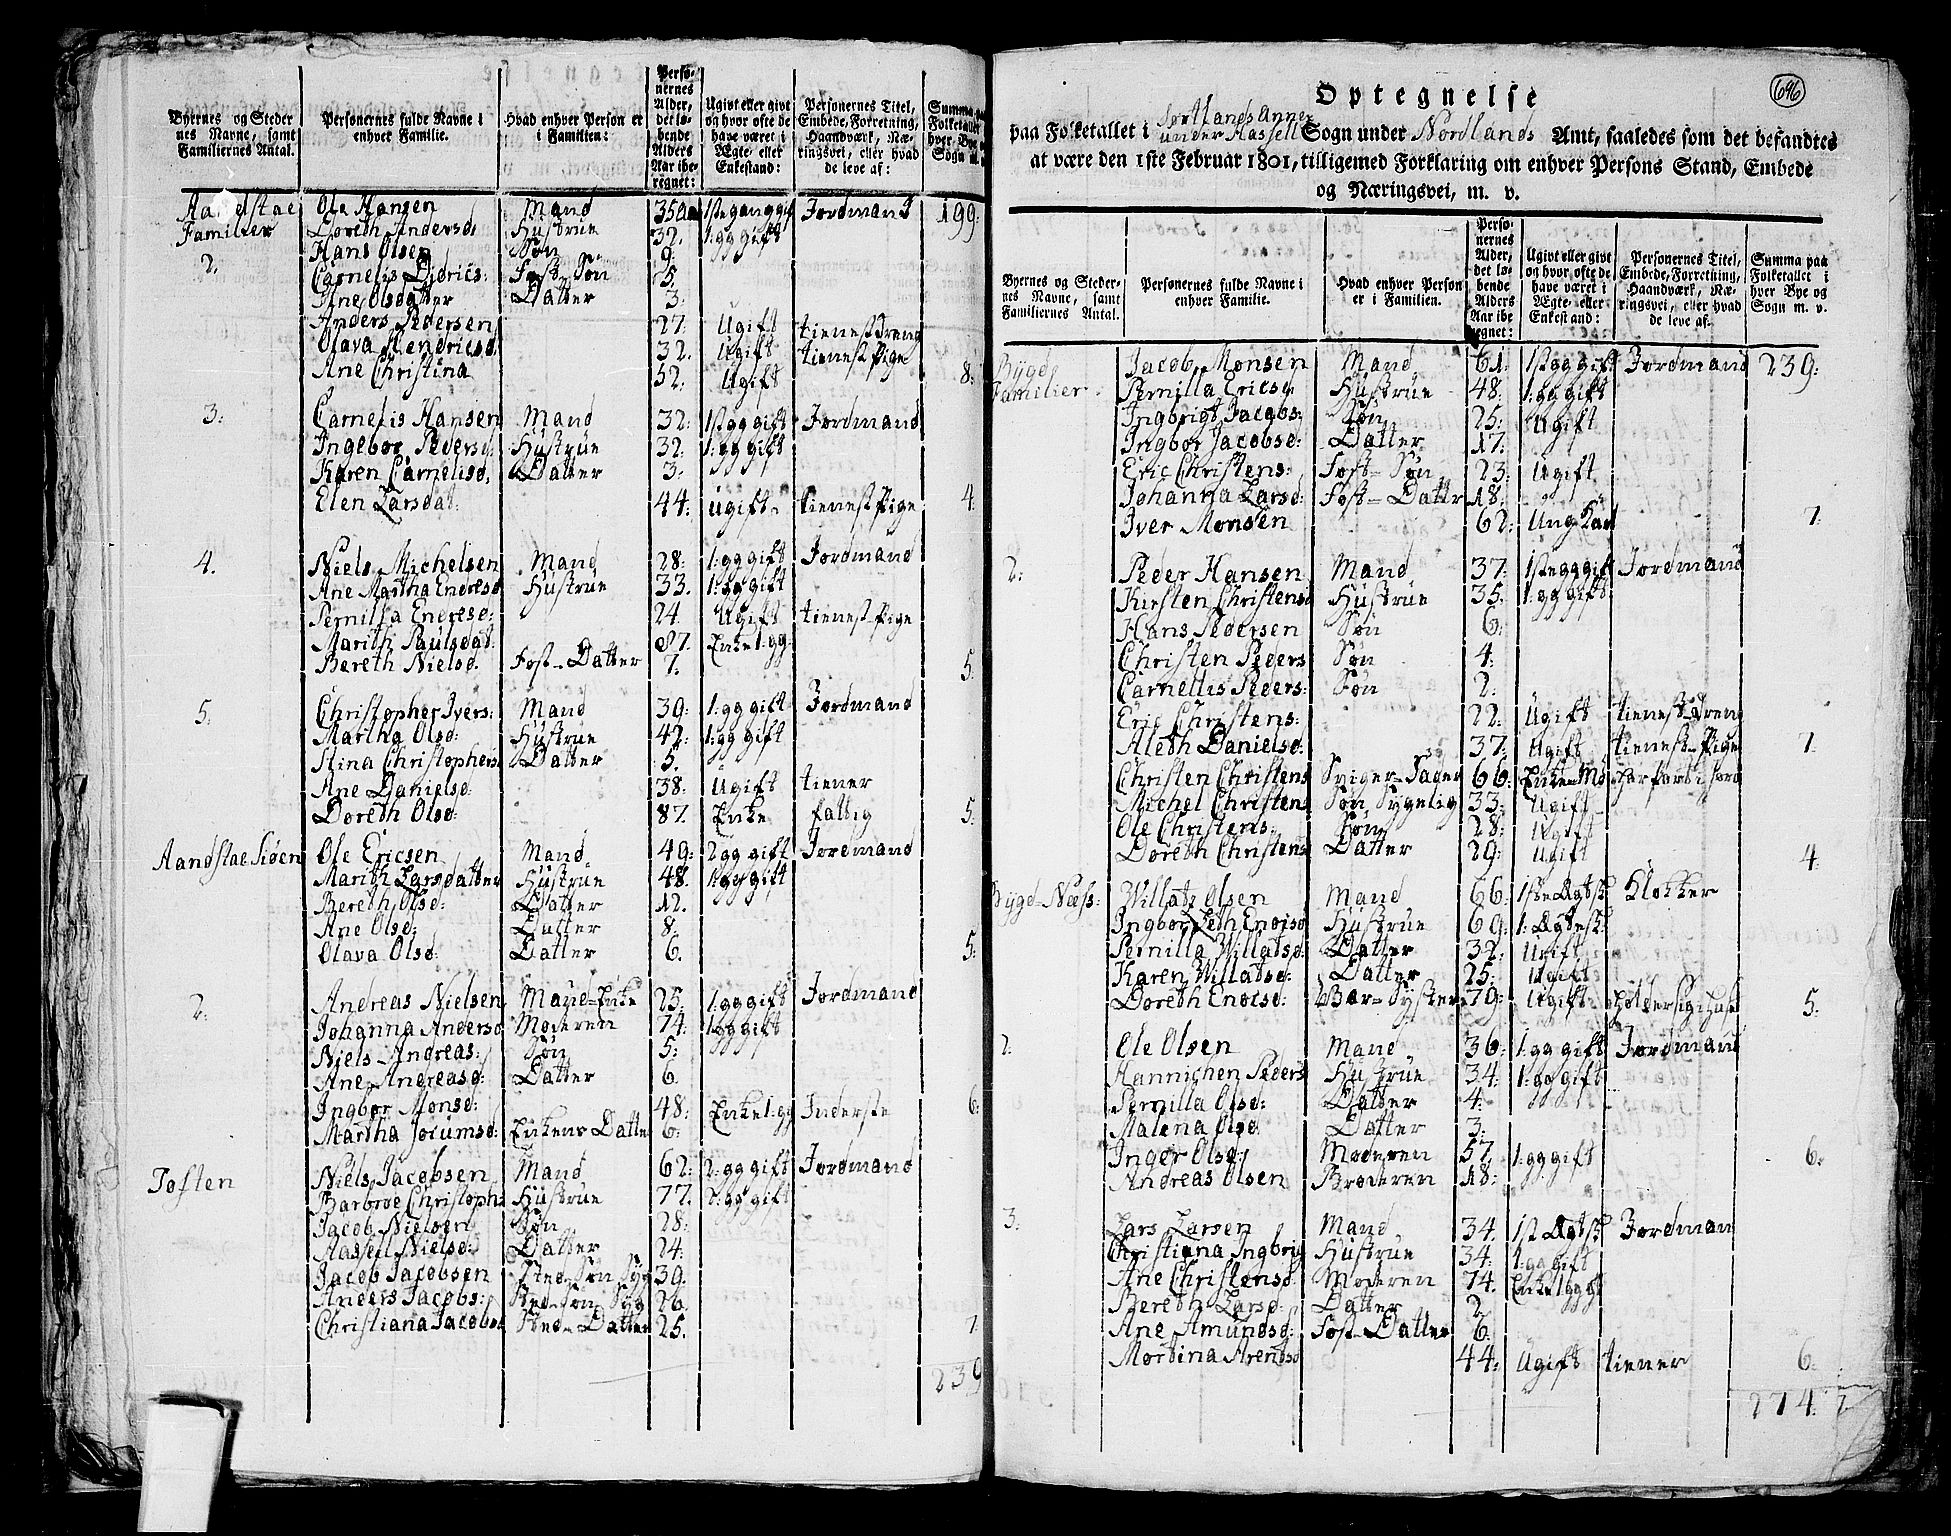 Byernes og Steder
nes Navne, samt
Familiernes Antal.
Personernes fulde Navne i
enhver Familie.
Hvad enhver Person er
i Familien:
Perso-
nernes
Alder,
det lø-
bende
Alders
Aar ibe-
regnet:
Ugivt eller givt
og hvor ofte de
have været i
Ægte- eller
Enkestand:
Personernes Titel,
Embede, Forretning,
Haandværk, Næ-
ringsvei, eller hvad
de leve af:
Summa
Folketallet
hver Bye
Sogn m.
Ole Hansen Mand 35 Jordmand 199
Familier Doreth Anderso, Hustrue 32. 1:gg gift
Hans Olsen Søn 9.
2. Carnelis Didrics: Fost-Søn 5.
Ane Olsdatter Datter 3.
Anders Pedersen 27: Ugift tienest Dreng
Olava Hendricsd. 32. Ugift tienest Pige
Ane Christina 52. Ugift 8:
3: Carnelis Hansen Mand 32: 1st gg gift Jordmand
Ingebor Peders Hustrue 32: 1:gg gift
Karen Carnelisd, Datter 3:
Elen Larsdat: 44: Ugift- tienest Pige 4
4. Niels Michelsen Mand 28: 1:gg gift Jordmand
Ane Martha Endresd Hustrue 33. 1:gg gift
Pernilla Endresd: 24 Ugift tienest-Pige
Marith Paulsdat: 87. Enke 1:gg
Bereth Nielsd. Fost-Datter 7. 5
5: Christopher Ivers: Mand 39: 1:gg gift Jordmand
Martha Olsd: Hustrue 42: 1:gg gift
Stina Christophers Datter 5.
Ane Danielsd 38: Ugift tiener
Doreth Olsd: 87. Enke fattig 5:
Aandstae Siøen Ole Ericsen Mand 49: 2 gg gift Jordmand
Marith Larsdatter Hustrue 48. 1 gg gift
Bereth Olsd: Datter 12.
Ane Olsd: Datter 8.
Olava Olsd: Datter 6. 5:
2: Andreas Nielsen Mand 25: 1:gg gift Jordmand
Johanna Anders Moderen 74: 1:gg gift
Niels Andreas: Søn 5:
Ane Andreasd: Datter 6.
Ingbor Monsd: 48: Enke 1:gg Inderste 6:
Martha Jorumsd: Enkens Datter 6:
Toften Niels Jacobsen Mand 62: 2:gg gift Jordmand
Barbroe Christoph: Hustrue 77. 2:gg gift
Jacob Nielsen Søn 28:
Nielsd: Datter 24:
Jacob Jacobsen Sted-Søn Syg 39.
Anders Jacobs: Sted-Søn Syg 26
Christiana Jacobs Sted-Datter 25. 7
239
696
Optegnelse
paa Folketallet i Sortlands Annex
under Hassell Sogn under Nordlands Amt, saaledes som det befandtes
at være den 1ste Februar 1801, tilligemed Forklaring om enhver Persons Stand, Embede
og Næringsvei, m. v.
Byernes og Steder-
nes Navne, samt
Familiernes Antal.
Personernes fulde Navne i
enhver Familie.
Hvad enhver Person
er i Familien.
Perso-
nernes
Alder,
det lø-
bende
Alders
Aar ibe
regnet:
Ugivt eller givt
og hvor ofte de
have været i
Ægte- eller
Enkestand:
Personernes Titel,
Embede, Forretning,
Haandværk, Næ-
ringsvei, eller hvad
de leve af.
Summa paa
Folketallet i
hver Bye og
Sogn m. v.
Bygd Jacob Monsen Mand 61: 1st gg gift Jordmand 239:
Familier: Pernilla Erics Hustrue 48: 1:gg gift
Ingbrigt Jacobs: Søn 25: Ugift
Ingbor Jacobsd: Datter 17.
Eric Christens: Fost-Søn 23: Ugift
Johanna Larsd: Fost-Datter 18:
Iver Monsen 62: Ung Karl 7:
2: Peder Hansen Mand 37: 1ste gg gift Jordmand
Kirsten Christensd Hustrue 35. 1:gg gift
Hans Pedersen Søn 6:
Christen Peders Søn 4:
Carnelis Peders: Søn 2:
Eric Christens: 22: Ugift tienest-Dreng
Aleth Danielsd: 37: Ugift tienest-Pige 7.
Christen Christens Sviger-Fader 66:
Michel Christens Søn Sygelig 33: Ugift
Ole Christens: Søn 28: Ugift
Doreth Christens Datter 29: Ugift 4
Bygd-Næss: Willats Olsen Mand 66: 1ste Ægtsk Klokker
Ingbor Leth Endrisd Hustrue 69: 1: Ægtesk:
Pernilla Willatsd: Datter 32: Ugift
Karen Willatsd: Datter 25: Ugift
Doreth Endrsd: Syster 79: Ugift 5:
2. Ole Olsen Mand 36: 1:gg gift Jordmand
Hannichen Peders Hustrue 34: 1:gg gift
Pernilla Olsd: Datter 4:
Malena Olsd Datter 3:
Inger Olsd: Moderen 57. 1:gg gift 6:
Andreas Olsen Broderen 18:
3: Lars Larsen Mand 34. 1st Ægtsk Jordman
Christiana Ingbrig Hustrue 34: 1:gg gift
Ane Christensd Moderen 74. Enke 1 gg
Bereth Larsd: Datter 2
Ane Amundsd: Fost-Datter 6:
Mortina Arentsd 44: Ugift tiener 6:
274